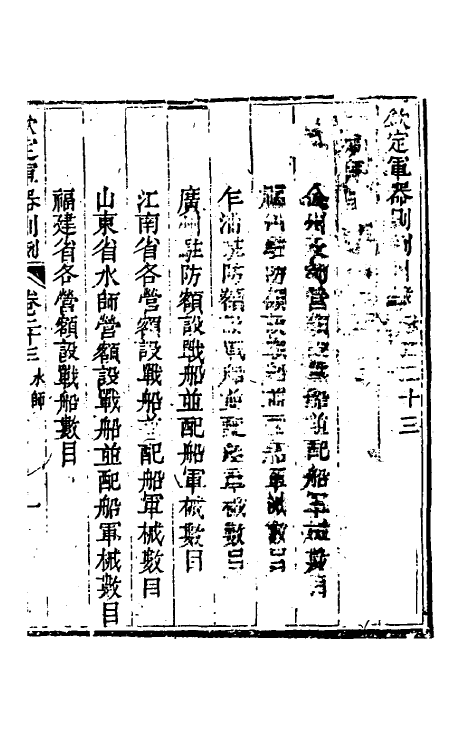 欽定軍器則例卷二十三
水師
金州水師營額設戰船並配船軍械數目
福州駐防額設戰船並配船軍械數目
乍浦駐防額設戰船並配船軍械數目
廣州駐防額設戰船並配船軍械數目
江南省各營額設戰船並配船軍械數目
山東省水師營額設戰船並配船軍械數目
福建省各營額設戰船數目
欽定軍器則例 卷二十三 水師 一